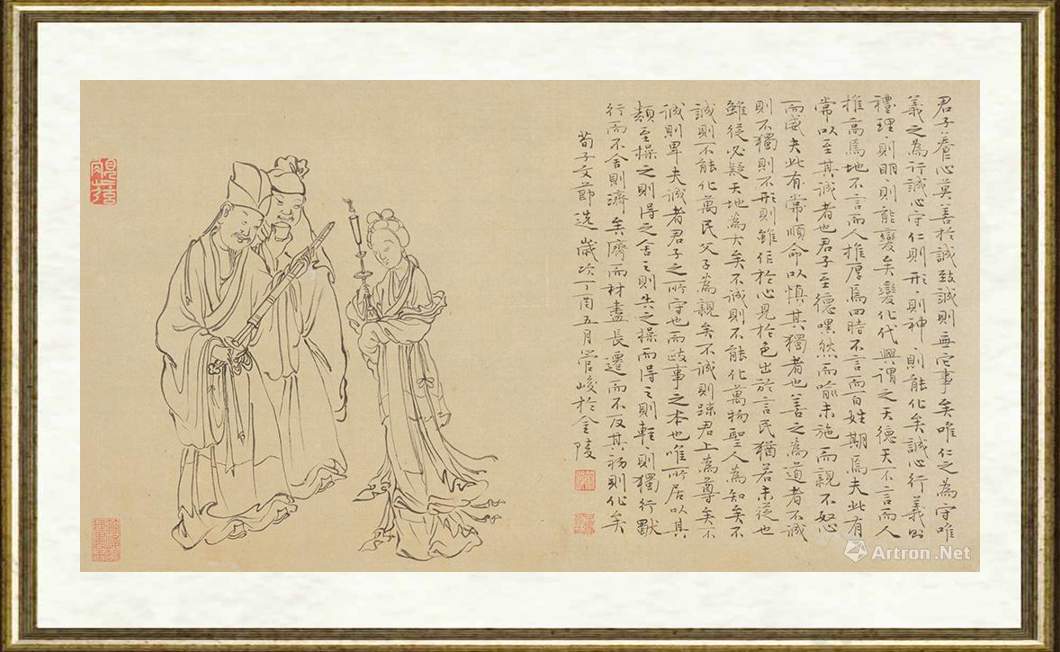 君子養心莫善於誠致誠則無它事矣唯仁之為守唯
義之為行誠心守仁則形〻則神〻則能化矣誠心行義則
禮理〻則明〻則能變矣變化代興謂之天德天不言而人
推高焉地不言而人推厚焉四時不言而百姓期焉夫此有
常以至其誠者也君子至德嘿然而喻未施而親不怒
而威夫此有常順命以慎其獨者也善之為道者不誠
則不獨則不形則雖作於心見於色出於言民猶若未從也
雖從必疑天地為大矣不誠則不能化萬物聖人為知矣不
誠則不能化萬民父子為親矣不誠則疎君上為尊矣不
誠則卑夫誠者君子之所守也而政事之本也唯所居以其
類至操之則得之舍之則失之操而得之則輕〻則獨行獸
行而不舍則濟矣濟而材盡長遷而不反其初則化矣
荀子文節選歲次丁酉五月管峻於金陵
Artron.Net